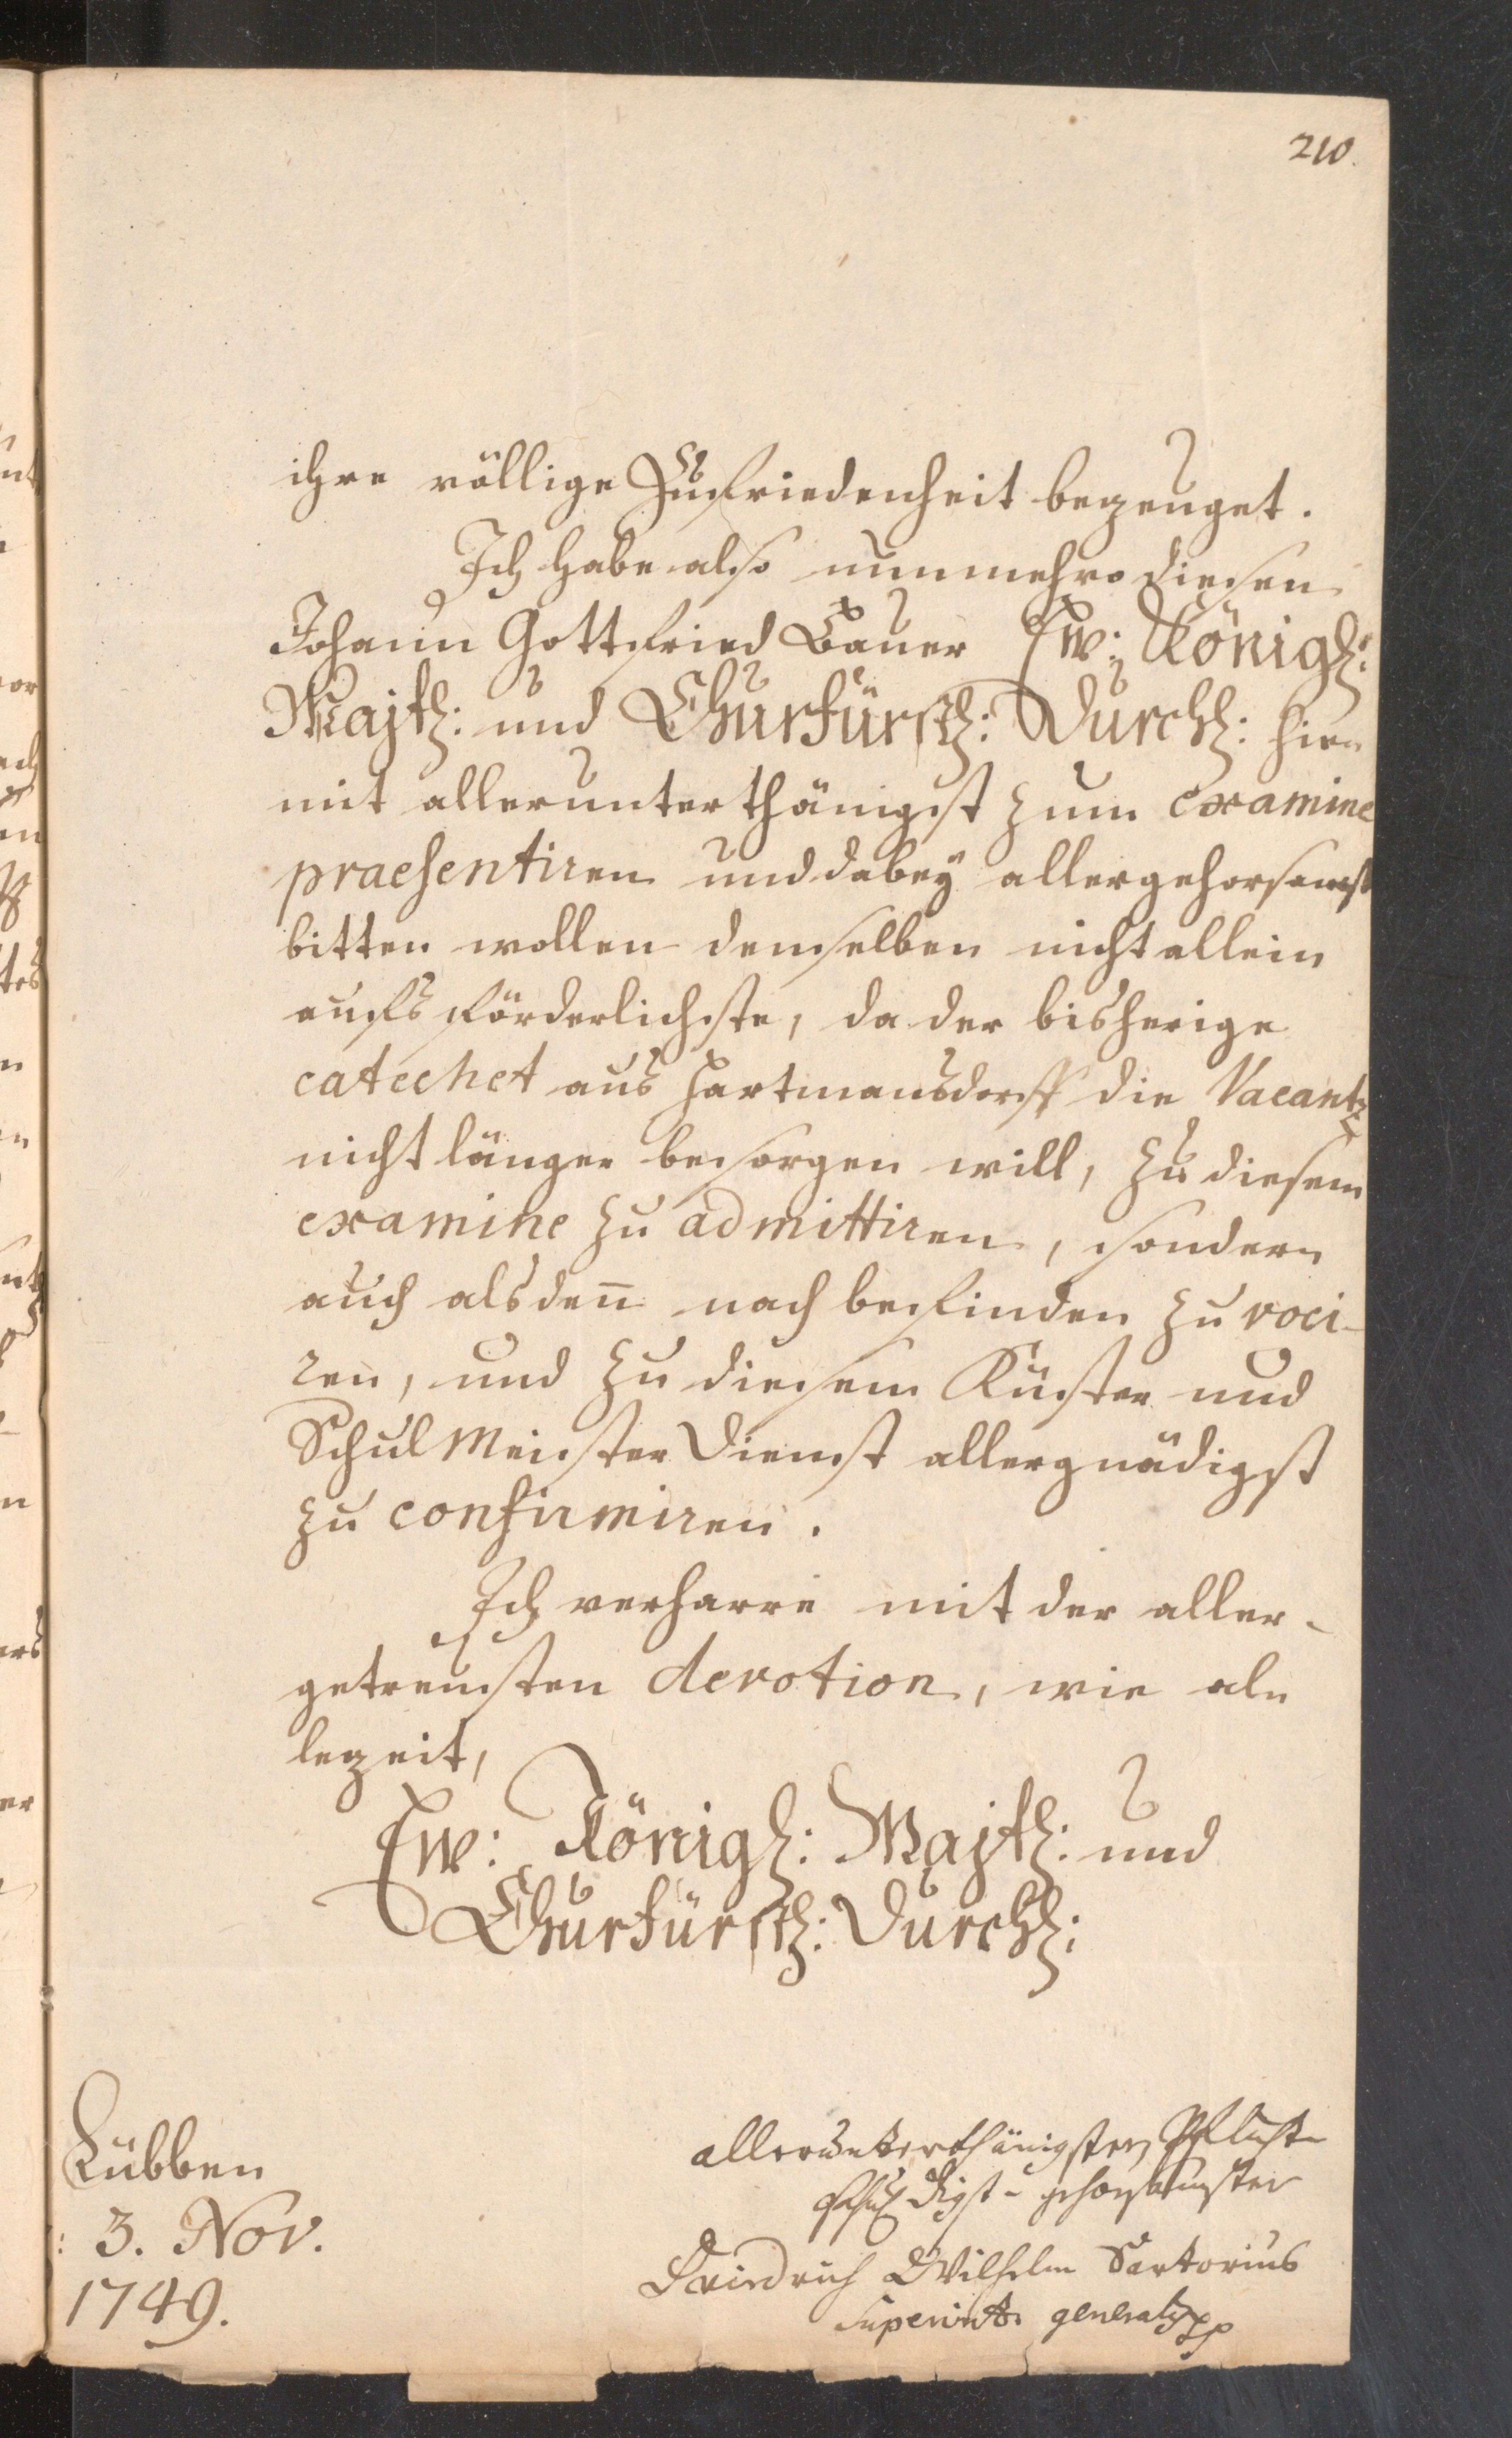 210.
ihre völlige Zufriedenheit bezeuget.
Ich habe also nunmehro diesen
Johann Gottfried Bauer Ew: Königl:
Majtl: und Churfürstl: Durchl: hier
mit allerunterthänigst zum examine
praesentiren und dabey allergehorsamst
bitten wollen demselben nicht allein
aufs förderlichste, da der bisherige
catechet aus Hartmansdorff die Vacantz
nicht länger besorgen will, zu diesem
examine zu admittiren, sondern
auch alsden̄ nach befinden zu voci-
ren, und zu diesem Küster und
Schul Meister Dienst allergnädigst
zu confirmiren.
Ich verharre mit der aller-
getreusten devotion, wie al-
lezeit,
Ew: Königl: Majtl: und
Churfürstl: Durchl:
Lübben
3. Nov.
1749.
allerunterthänigster, Pflicht-
schuldigst-gehorsamster
Friedrich Wilhelm Sartorius